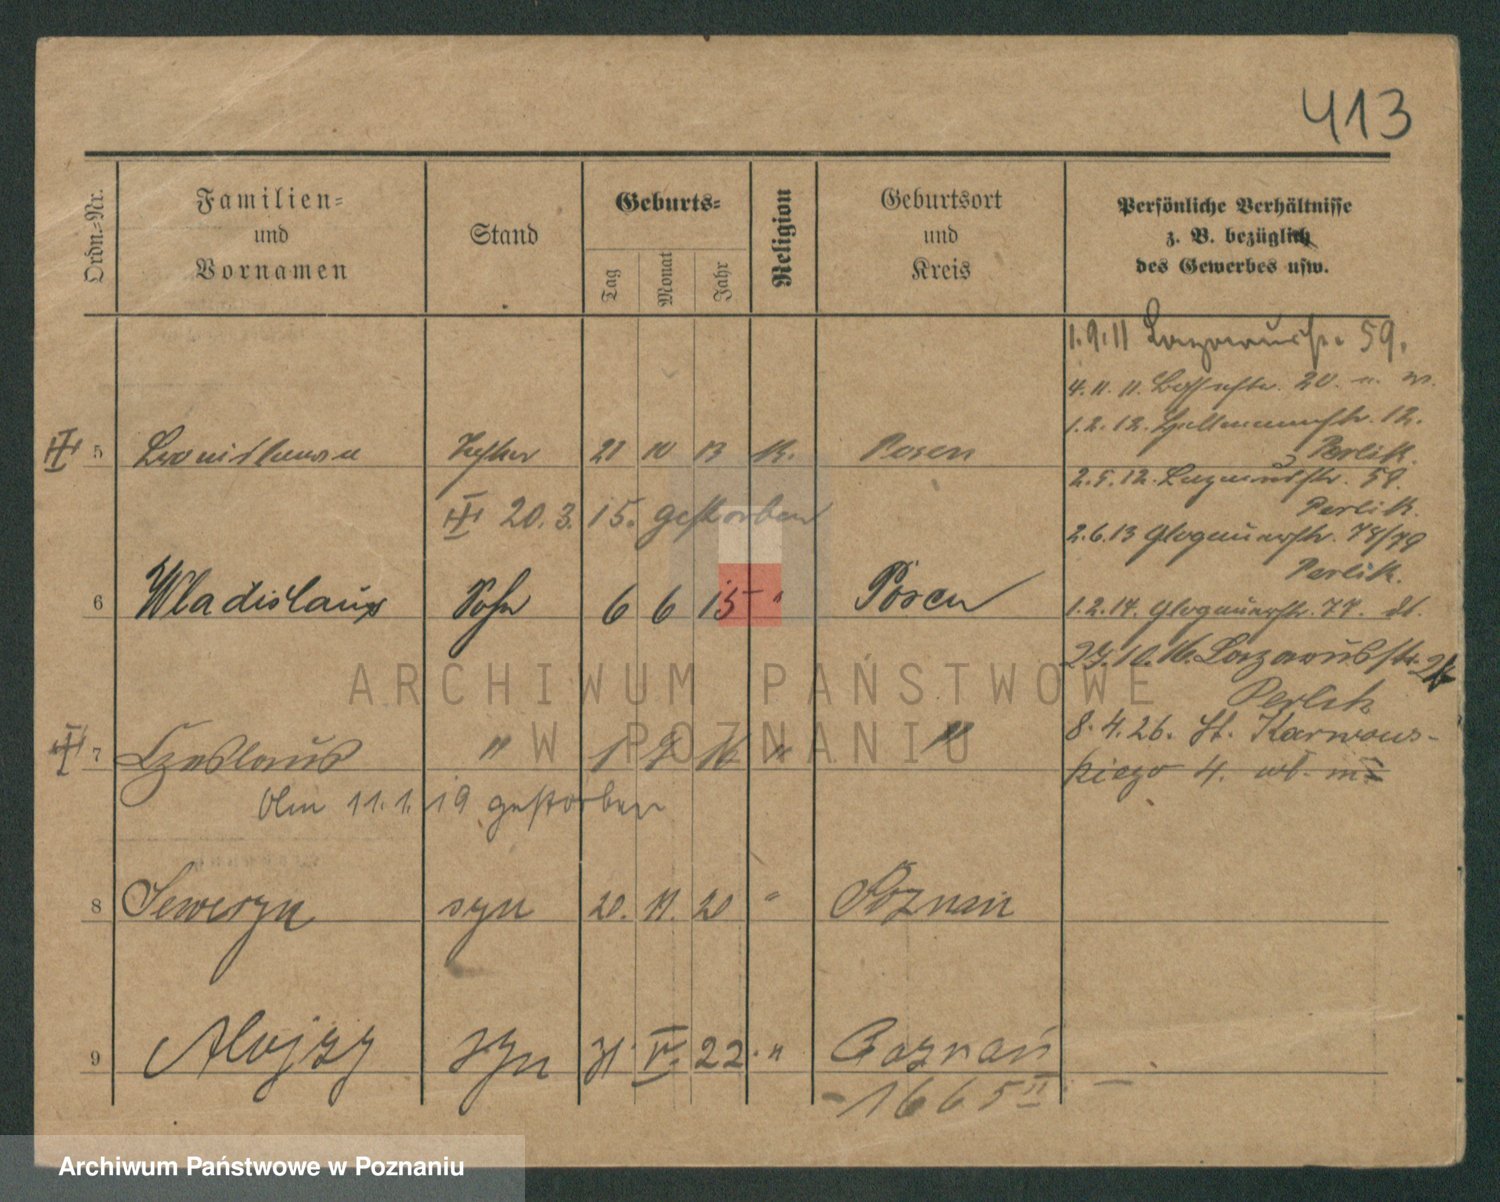 413
Ordn.-Nr. Familien- und Vornamen Stand Geburts- Tag Monat Jahr Religion Geburtsort und Kreis Persönliche Verhältnisse z. B. bezüglich des Gewerbes usw.
1.9.11 Lazarusstr. 59.
4.11.11. 20.
1.2.12. 12.
Perlik.
5 21 10 13 k. Posen
2.5.12. Lazarusstr. 59.
Perlik.
20.3.15. gestorben
2.6.13 Glogauerstr. 78/79
Perlik.
6 Wladislaus Sohn 6 6 15 " Posen
1.2.14. Glogauerstr. 77.
27.10.16. Lazarusstr.
Perlik
8.4.26. St. Karwows-
kiego 4.
7 Czeslaus " 1 7 16 " "
Am 11.1.19 gestorben
8 Seweryn syn 20. 11. 20 " Poznań
9 Alojzy syn 31. V. 22. " Poznań
- 1665 II -
ARCHIWUM PAŃSTWOWE
W POZNANIU
Archiwum Państwowe w Poznaniu